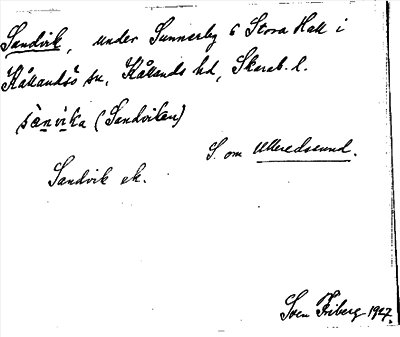 Sandvik, under Sunnerby o Stora Hall i
Kållandsö sn, Kållands hd, Skarab. l.
sànvíka (Sandviken)
S. om Ulleredssund.
Sandvik ek.
Sven Friberg 1927.